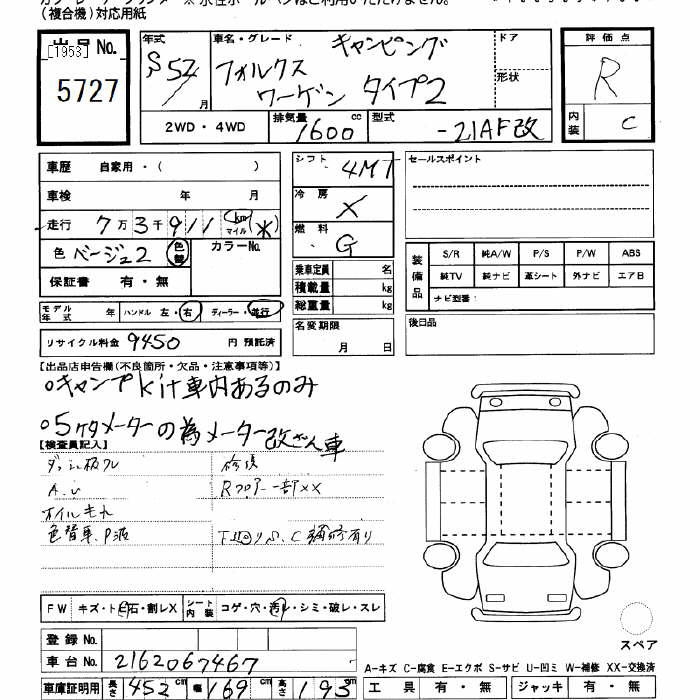 (複合機)対応用紙
出品No. [1953] 5727
年式 S52年 月
車名・グレード フォルクスワーゲン タイプ2 キャンピング
ドア
形状
2WD・4WD 排気量 1600 cc 型式 -21AF改
評価点 R
内装 C
車歴 自家用・( )
車検 年 月
走行 7万3千911 km マイル (*)
色 ベージュ2 色替 カラーNo.
保証書 有・無
モデル年式 年 ハンドル 左・右 ディーラー・並行
リサイクル料金 9450 円 預託済
シフト 4MT
冷房 X
燃料 G
乗車定員 名
積載量 kg
総重量 kg
名変期限
月 日
セールスポイント
装備品 S/R 純A/W P/S P/W ABS
純TV 純ナビ 革シート 外ナビ エアB
ナビ型番:
後日品
【出品店申告欄(不良箇所・欠品・注意事項等)】
○キャンプkit車内あるのみ
○5ケタメーターの為メーター改ざん車
【検査員記入】
A.U
Rフロアー一部XX
オイルもれ
色替車、P波
下回りS、C補修有り
FW キズ・ト石・割レX シート内装 コゲ・穴・汚レ・シミ・破レ・スレ
登録No.
車台No. 2162067467
車庫証明用 長さ 452 cm 幅 169 cm 高さ 195 cm
スペア
A-キズ C-腐食 E-エクボ S-サビ U-凹ミ W-補修 XX-交換済
工具 有・無 ジャッキ 有・無